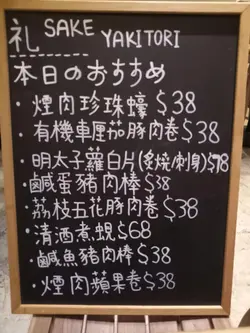 礼 SAKE YAKITORI
本日のおすすめ
・煙肉珍珠蠔$38
・有機車厘茄豚肉卷$38
・明太子蘿白片(炙燒/刺身)$78
・鹹蛋豬肉棒$38
・荔枝五花豚肉卷$38
・清酒煮蜆$68
・鹹魚豬肉棒$38
・煙肉蘋果卷$38